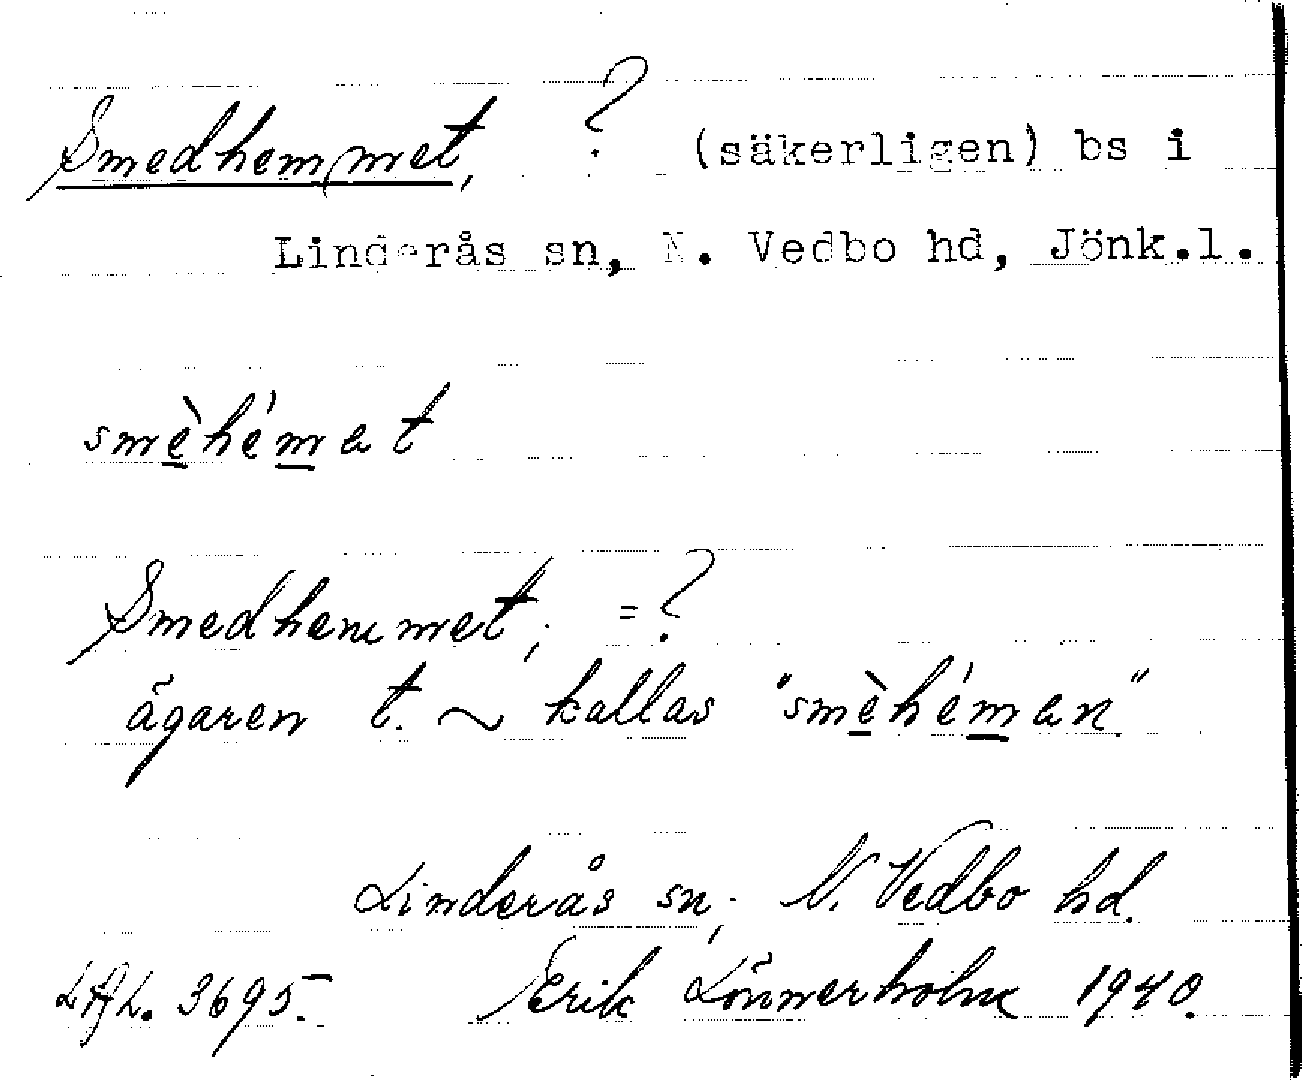 Smedhemmet, ? (säkerligen) bs i
Linderås sn, N. Vedbo hd, Jönk.l.
smèhémat
Smedhemmet; =?
ägaren t. ~ kallas "smèhéman"
Linderås sn; N. Vedbo hd.
3695. Erik Lönnerholm 1940.